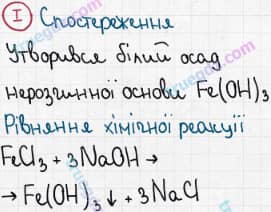 I Спостереження
Утворився білий осад
нерозчинної основи Fe(OH)₃
Рівняння хімічної реакції
FeCl₃ + 3NaOH →
→ Fe(OH)₃↓ + 3NaCl